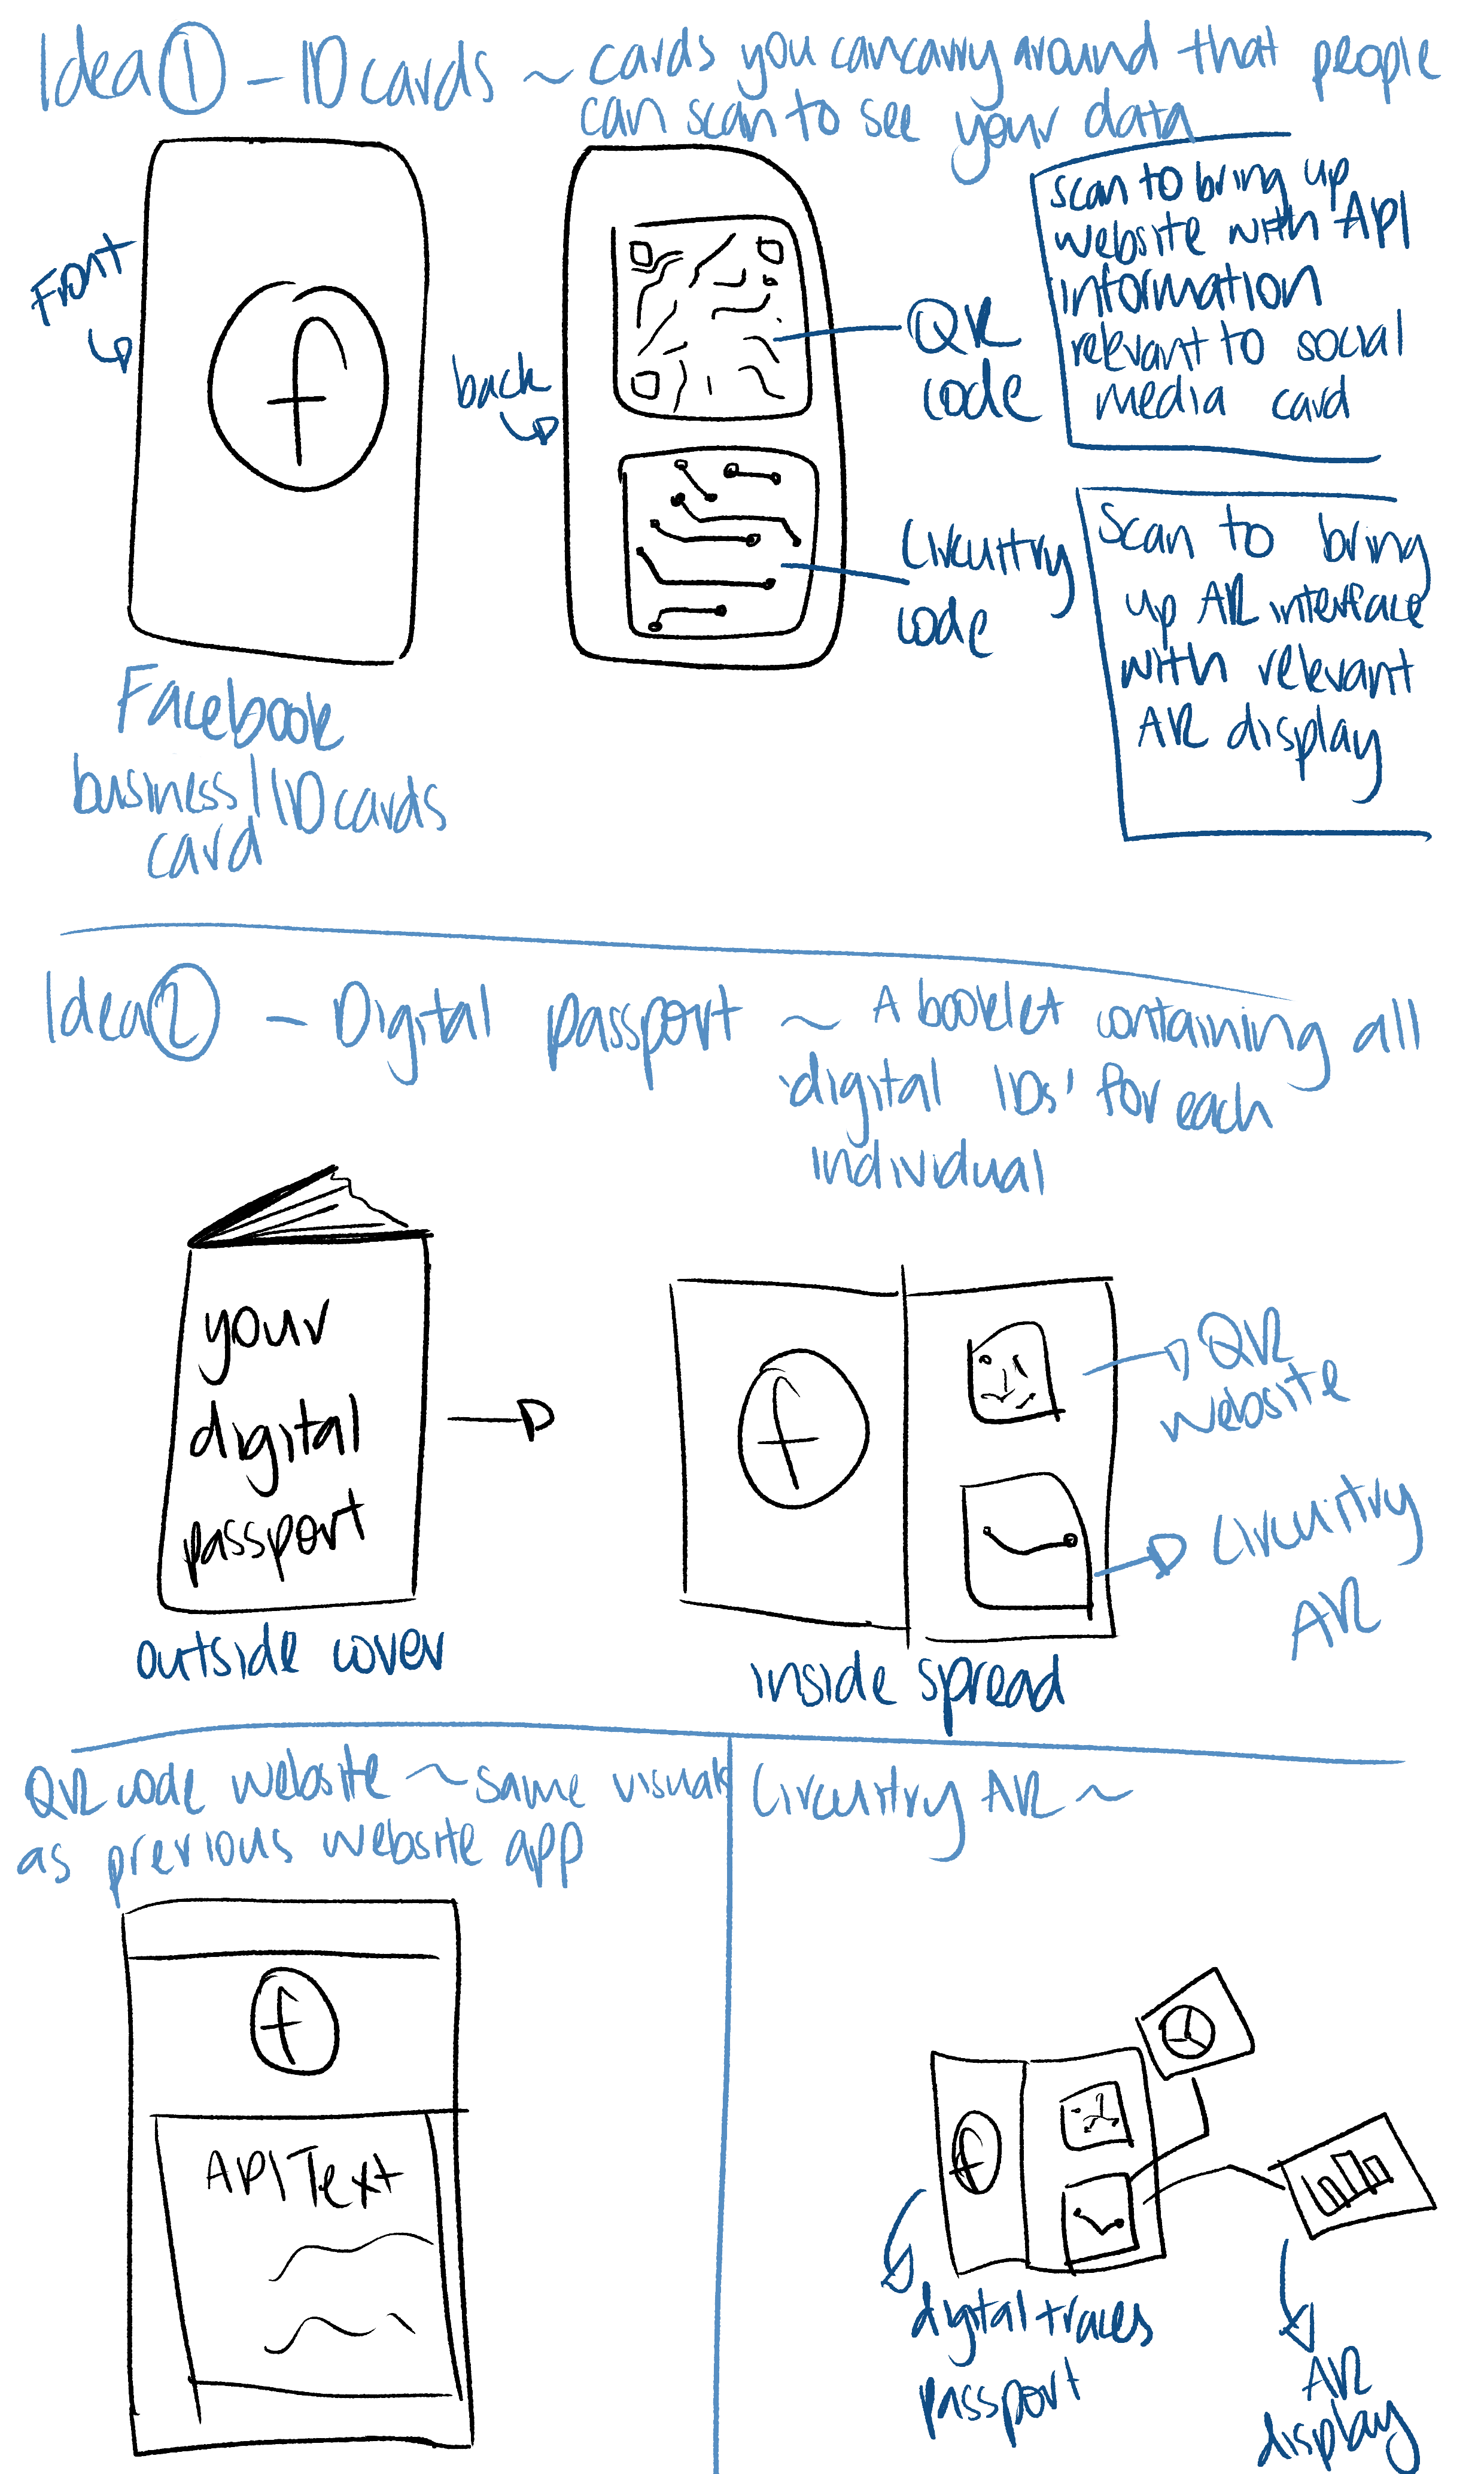 Idea ① - ID cards ~ cards you can carry around that people
can scan to see your data
Front
back
QR
code
scan to bring up
website with API
information
relevant to social
media card
Circuitry
code
Scan to bring
up AR interface
with relevant
AR display
Facebook
business / ID cards
card
Idea ② - Digital passport ~ A booklet containing all
'digital IDs' for each
individual
your
digital
passport
outside cover
f
QR
website
Circuitry
AR
inside spread
QR code website ~ same visuals
as previous website app
f
API Text
Circuitry AR ~
f
digital traces
passport
AR
display